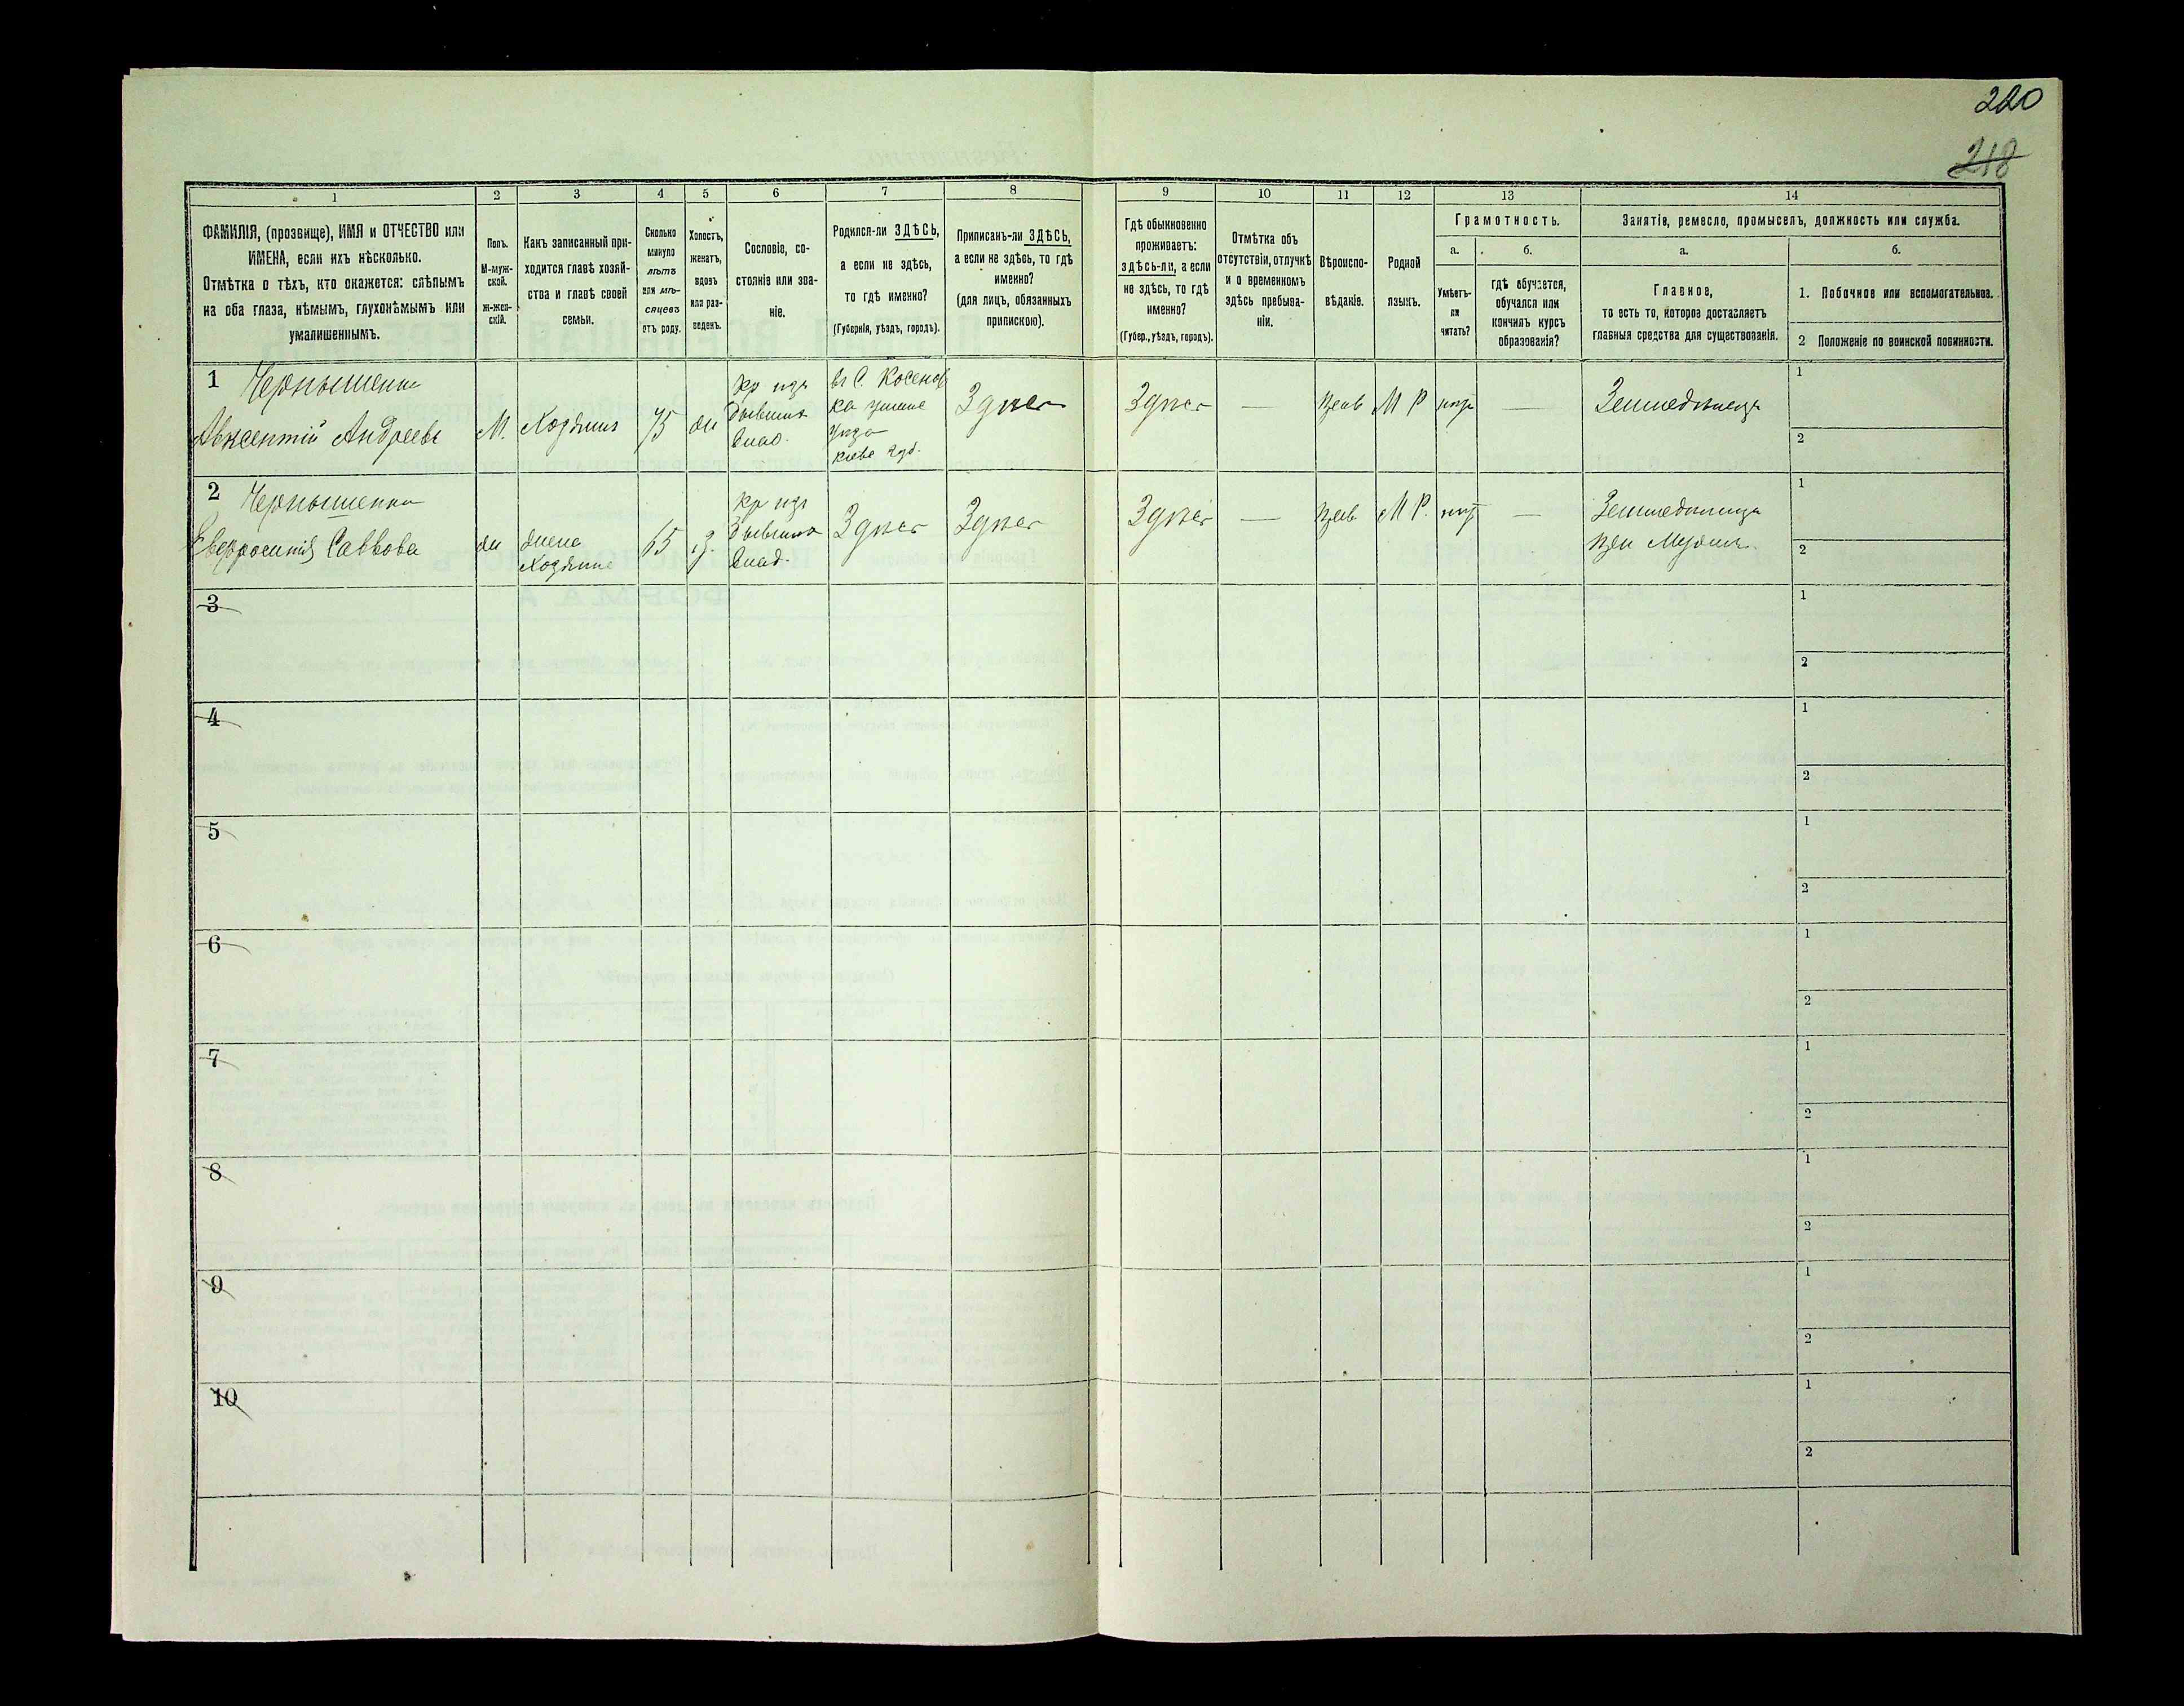 220
218
1
2
3
4
5
6
7
8
9
10
11
12
13
14
ФАМИЛІЯ, (прозвище), ИМЯ и ОТЧЕСТВО или
ИМЕНА, если ихъ нѣсколько.
Отмѣтка о тѣхъ, кто окажется: слѣпымъ
на оба глаза, нѣмымъ, глухонѣмымъ или
умалишеннымъ.
Полъ.
М-муж-
ской.
ж-жен-
скій.
Какъ записанный при-
ходится главѣ хозяй-
ства и главѣ своей
семьи.
Сколько
минуло
лѣтъ
или мѣ-
сяцевъ
отъ роду.
Холостъ,
женатъ,
вдовъ
или раз-
веденъ.
Сословіе, со-
стояніе или зва-
ніе.
Родился-ли ЗДѢСЬ,
а если не здѣсь,
то гдѣ именно?
(Губернія, уѣздъ, городъ).
Приписанъ-ли ЗДѢСЬ,
а если не здѣсь, то гдѣ
именно?
(для лицъ, обязанныхъ
припискою).
Гдѣ обыкновенно
проживаетъ:
здѣсь-ли, а если
не здѣсь, то гдѣ
именно?
(Губер., уѣздъ, городъ).
Отмѣтка объ
отсутствіи, отлучкѣ
и о временномъ
здѣсь пребыва-
ніи.
Вѣроиспо-
вѣданіе.
Родной
языкъ.
Грамотность.
а.
б.
Умѣетъ-
ли
читать?
гдѣ обучается,
обучался или
кончилъ курсъ
образованія?
Занятіе, ремесло, промыселъ, должность или служба.
а.
б.
Главное,
то есть то, которое доставляетъ
главныя средства для существованія.
1. Побочное или вспомогательное.
2 Положеніе по воинской повинности.
1 Чернышенко
Авксентій Андреевъ
М.
Хозяинъ
75
же
кр изъ
бывших
влад.
въ С. Косенов
ка Умане
Уѣзда
Киев. губ.
Здѣсь
Здѣсь
—
прав
М Р
—
Земледѣлецъ
1
2
2 Чернышенко
Евфросинія Саввова
ж
жена
Хозяина
65
З.
кр изъ
бывших
влад.
Здѣсь
Здѣсь
Здѣсь
—
прав
М Р.
—
Земледѣлица
при Мужѣ
1
2
3
1
2
4
1
2
5
1
2
6
1
2
7
1
2
8
1
2
9
1
2
10
1
2